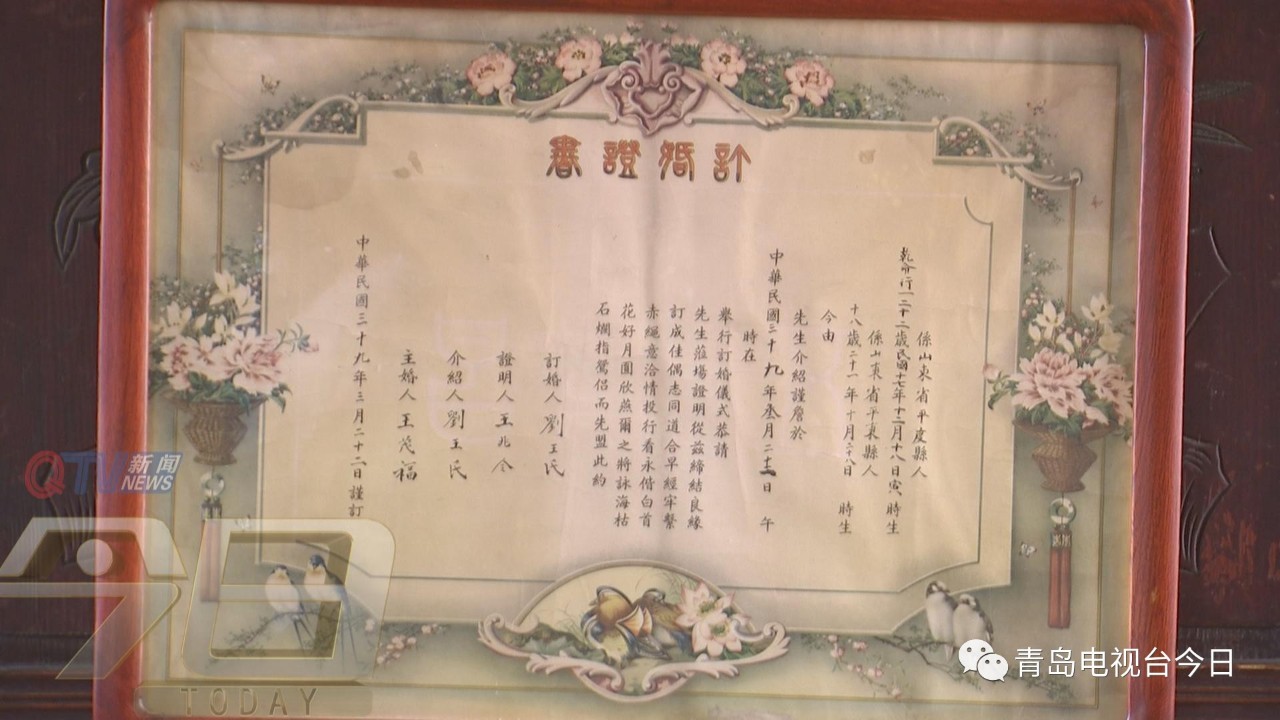 訂婚證書
係山東省平度縣人
乾命行一二十二歲民國十七年十二月十八日寅時生
係山東省平東縣人
十八歲二十一年十月二十八日 時生
今由
先生介紹謹詹於
中華民國三十九年叁月二十二日 午
時在
舉行訂婚儀式恭請
先生蒞場證明從茲締結良緣
訂成佳偶志同道合早經牢繫
赤繩意洽情投行看永偕白首
花好月圓欣燕爾之將詠海枯
石爛指鴛侶而先盟此約
訂婚人 劉王氏
證明人 王兆令
介紹人 劉王氏
主婚人 王茂福
中華民國三十九年三月二十二日謹訂
QTV 新闻
NEWS
今日
TODAY
青岛电视台今日